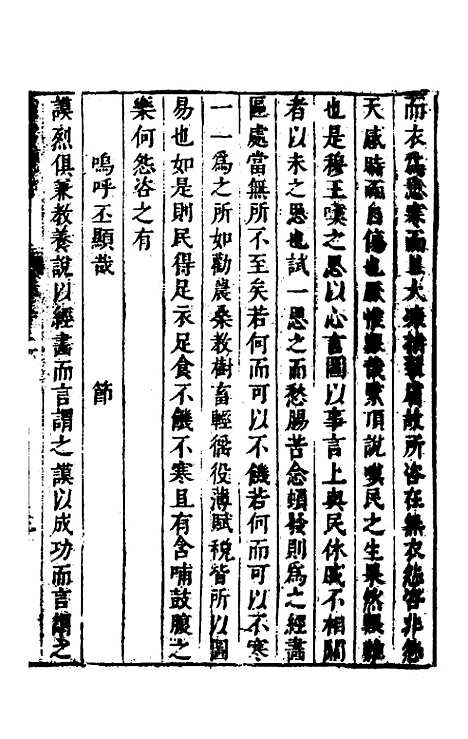 而衣為思寒而且大寒耕鑿廢故所咨在無衣怨咨非怨
天感時而自傷也厥惟艱哉緊頂說嘆民之生果然艱難
也是穆王嘆之思以心言圖以事言上與民休戚不相關
者以未之思也試一思之而愁腸苦念頓發則為之經畫
區處當無所不至矣若何而可以不饑若何而可以不寒
一一為之所如勸農桑教樹畜輕徭役薄賦稅皆所以圖
易也如是則民得足衣足食不饑不寒且有含哺鼓腹之
樂何怨咨之有
嗚呼丕顯哉 節
謨烈俱兼教養說以經畫而言謂之謨以成功而言謂之